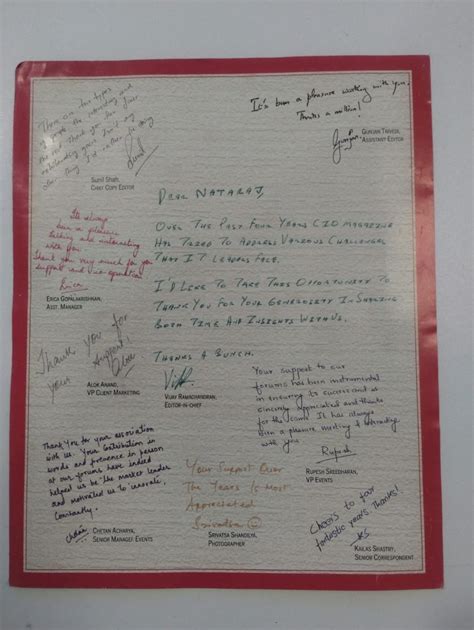 It's been a pleasure working with you.
Thanks a million!
GUNJAN TRIVEDI,
ASSISTANT EDITOR
There are two types
of people the interesting and
the rest. Thank you for
SUNIL SHAH,
CHIEF COPY EDITOR
DEAR NATARAJ,
OVER THE PAST FOUR YEARS CIO MAGAZINE
HAS TRIED TO ADDRESS VARIOUS CHALLENGES
THAT IT LEADERS FACE.
I'D LIKE TO TAKE THIS OPPORTUNITY TO
THANK YOU FOR YOUR GENEROSITY IN SHARING
BOTH TIME AND INSIGHTS WITH US.
THANKS A BUNCH.
VIJAY RAMACHANDRAN,
EDITOR-IN-CHIEF
Its always
been a pleasure
talking and interacting
with you.
Thank you very much for your
support and
Erica
ERICA GOPALAKRISHNAN,
ASST. MANAGER
Thank you for
your support!
Alok
ALOK ANAND,
VP CLIENT MARKETING
Your support to our
forums has been instrumental
in ensuring its success and is
sincerely appreciated and thanks
for the same. It has always
been a pleasure meeting & interacting
with you
Rupesh
RUPESH SREEDHARAN,
VP EVENTS
Thank You for your association
with us. Your contribution in
words and presence in person
at our forums have indeed
helped us be the market leader
and motivated us to innovate,
constantly.
CHETAN ACHARYA,
SENIOR MANAGER EVENTS
Your Support Over
The Years Is Most
Appreciated
Srivatsa
SRIVATSA SHANDILYA,
PHOTOGRAPHER
Cheers to four
fantastic years. Thanks!
KS
KAILAS SHASTRY,
SENIOR CORRESPONDENT